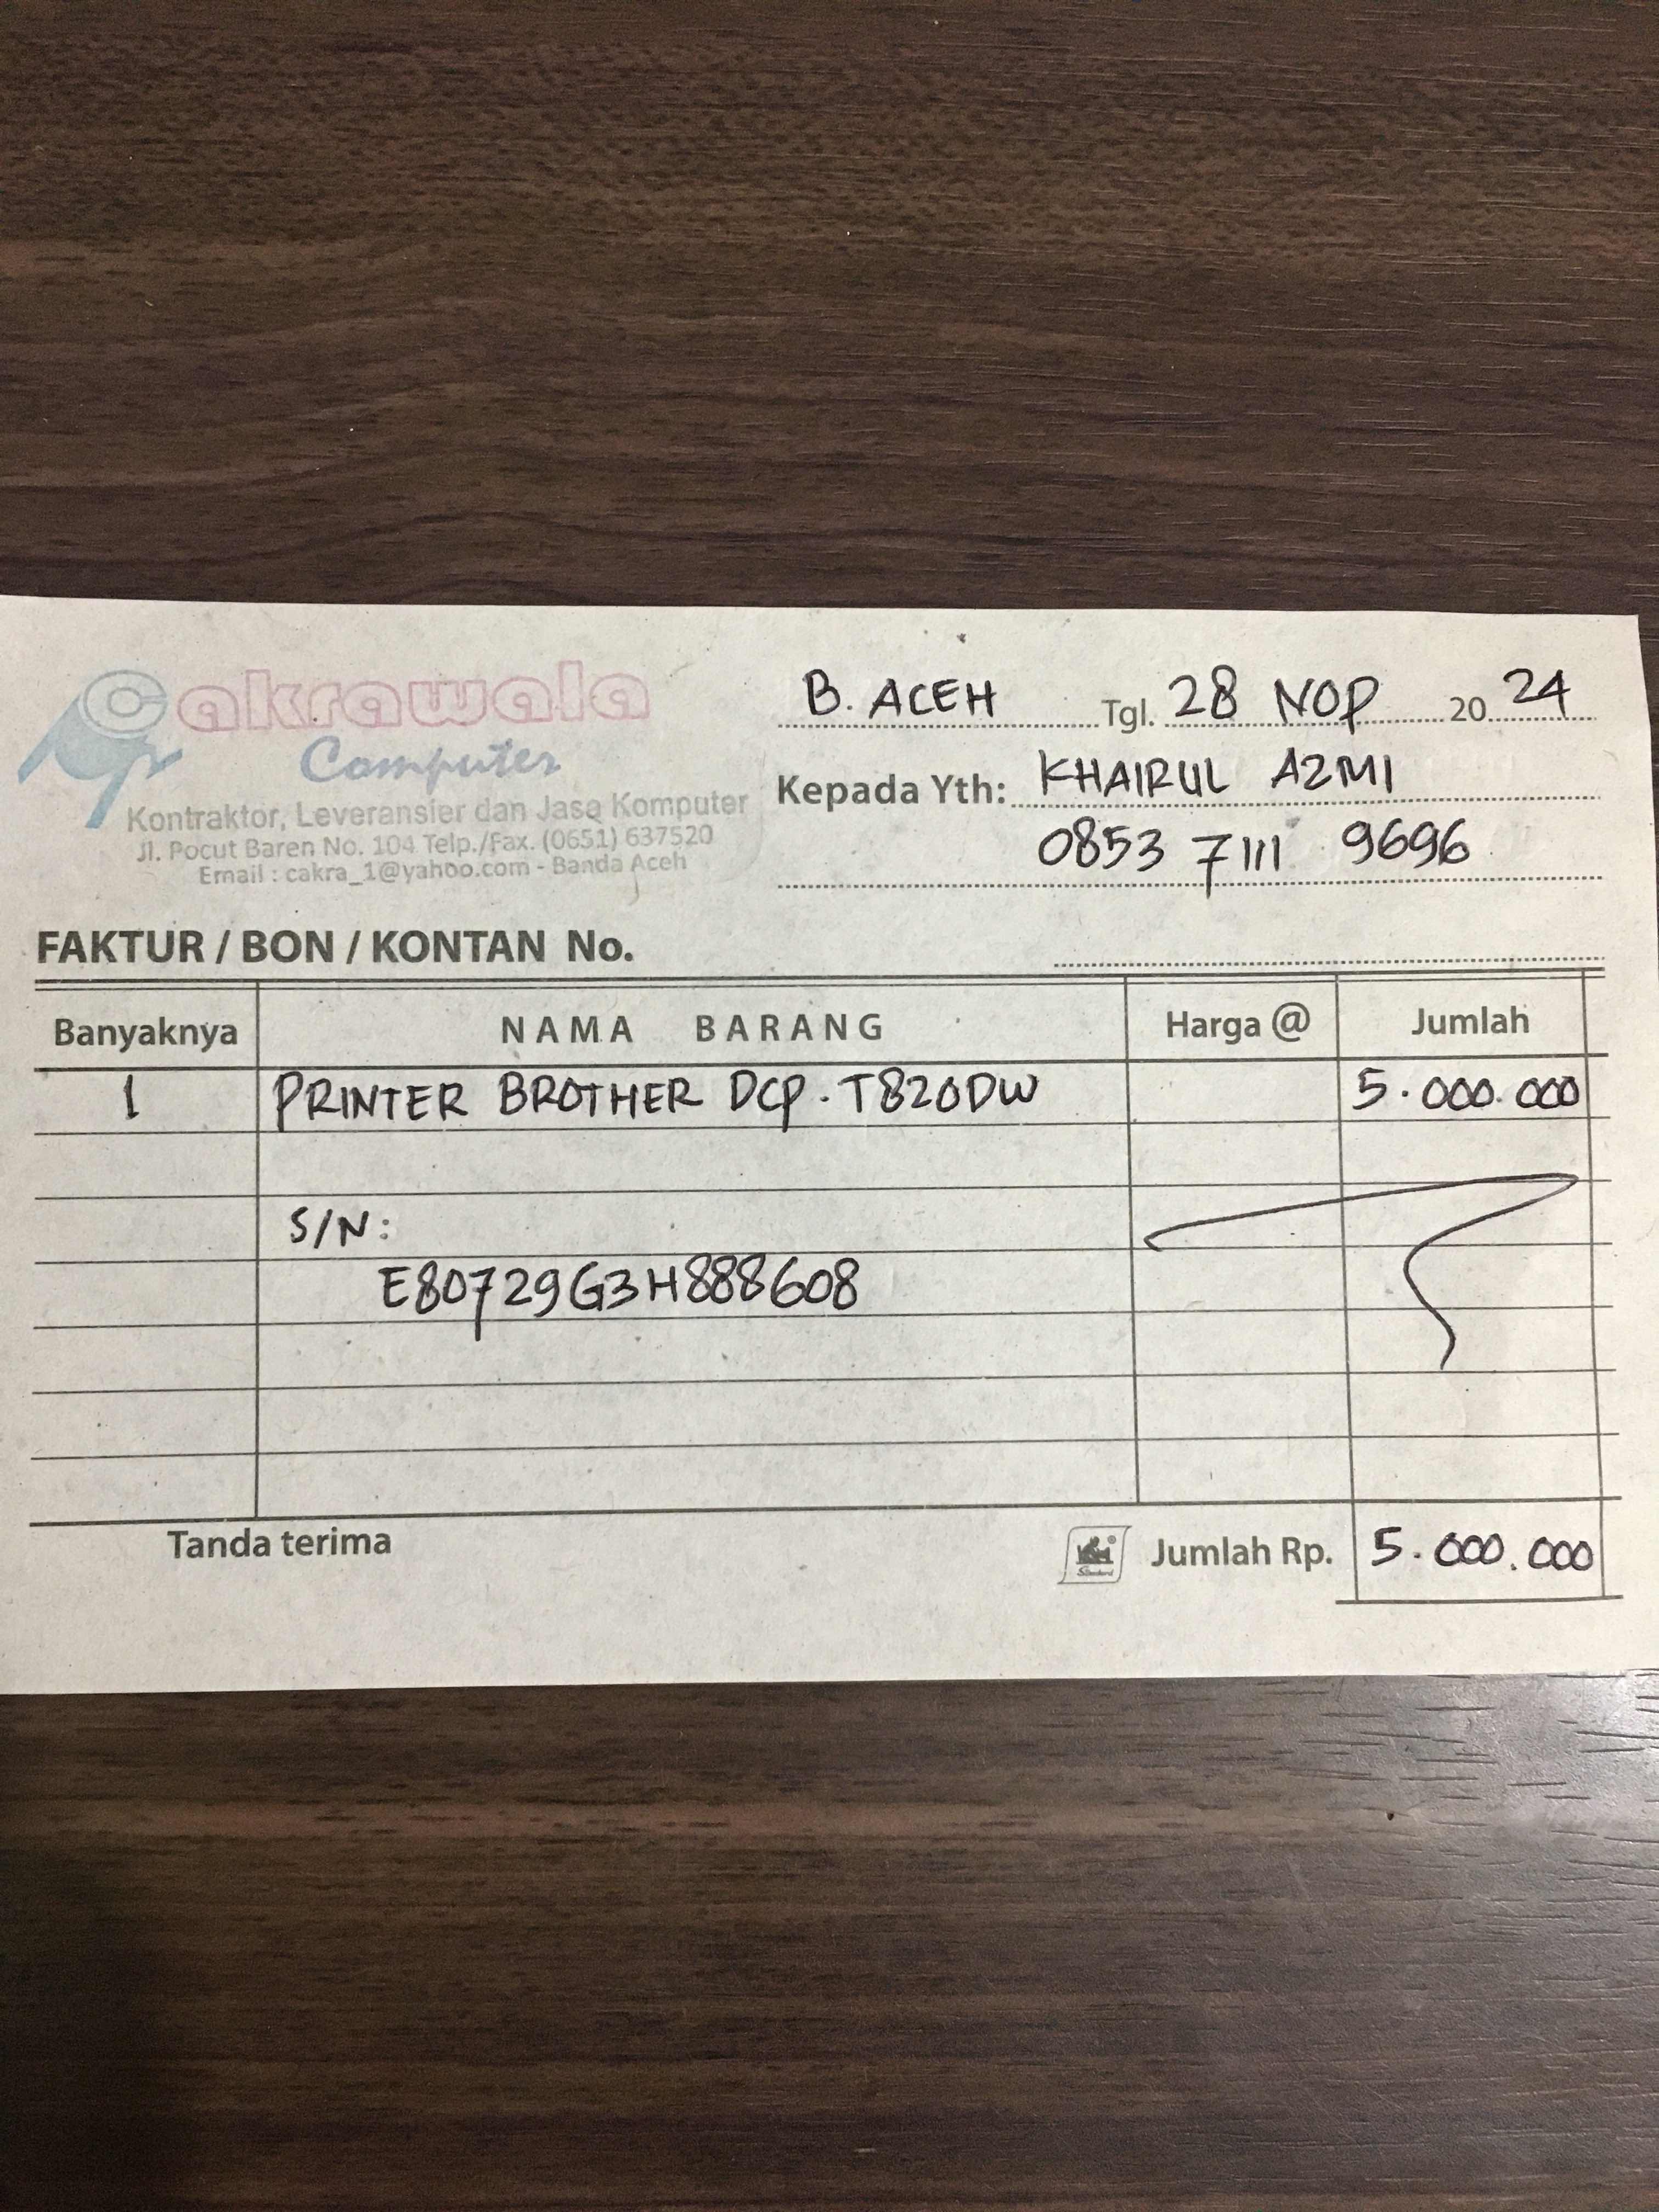 Cakrawala
Computer
Kontraktor, Leveransier dan Jasa Komputer
Jl. Pocut Baren No. 104 Telp./Fax. (0651) 637520
Email : cakra_1@yahoo.com - Banda Aceh
B. ACEH Tgl. 28 NOP 20 24
Kepada Yth: KHAIRUL AZMI
0853 7111 9696
FAKTUR / BON / KONTAN No.
Banyaknya NAMA BARANG Harga @ Jumlah
1 PRINTER BROTHER DCP-T820DW 5.000.000
S/N:
E80729G3H888608
Tanda terima Jumlah Rp. 5.000.000